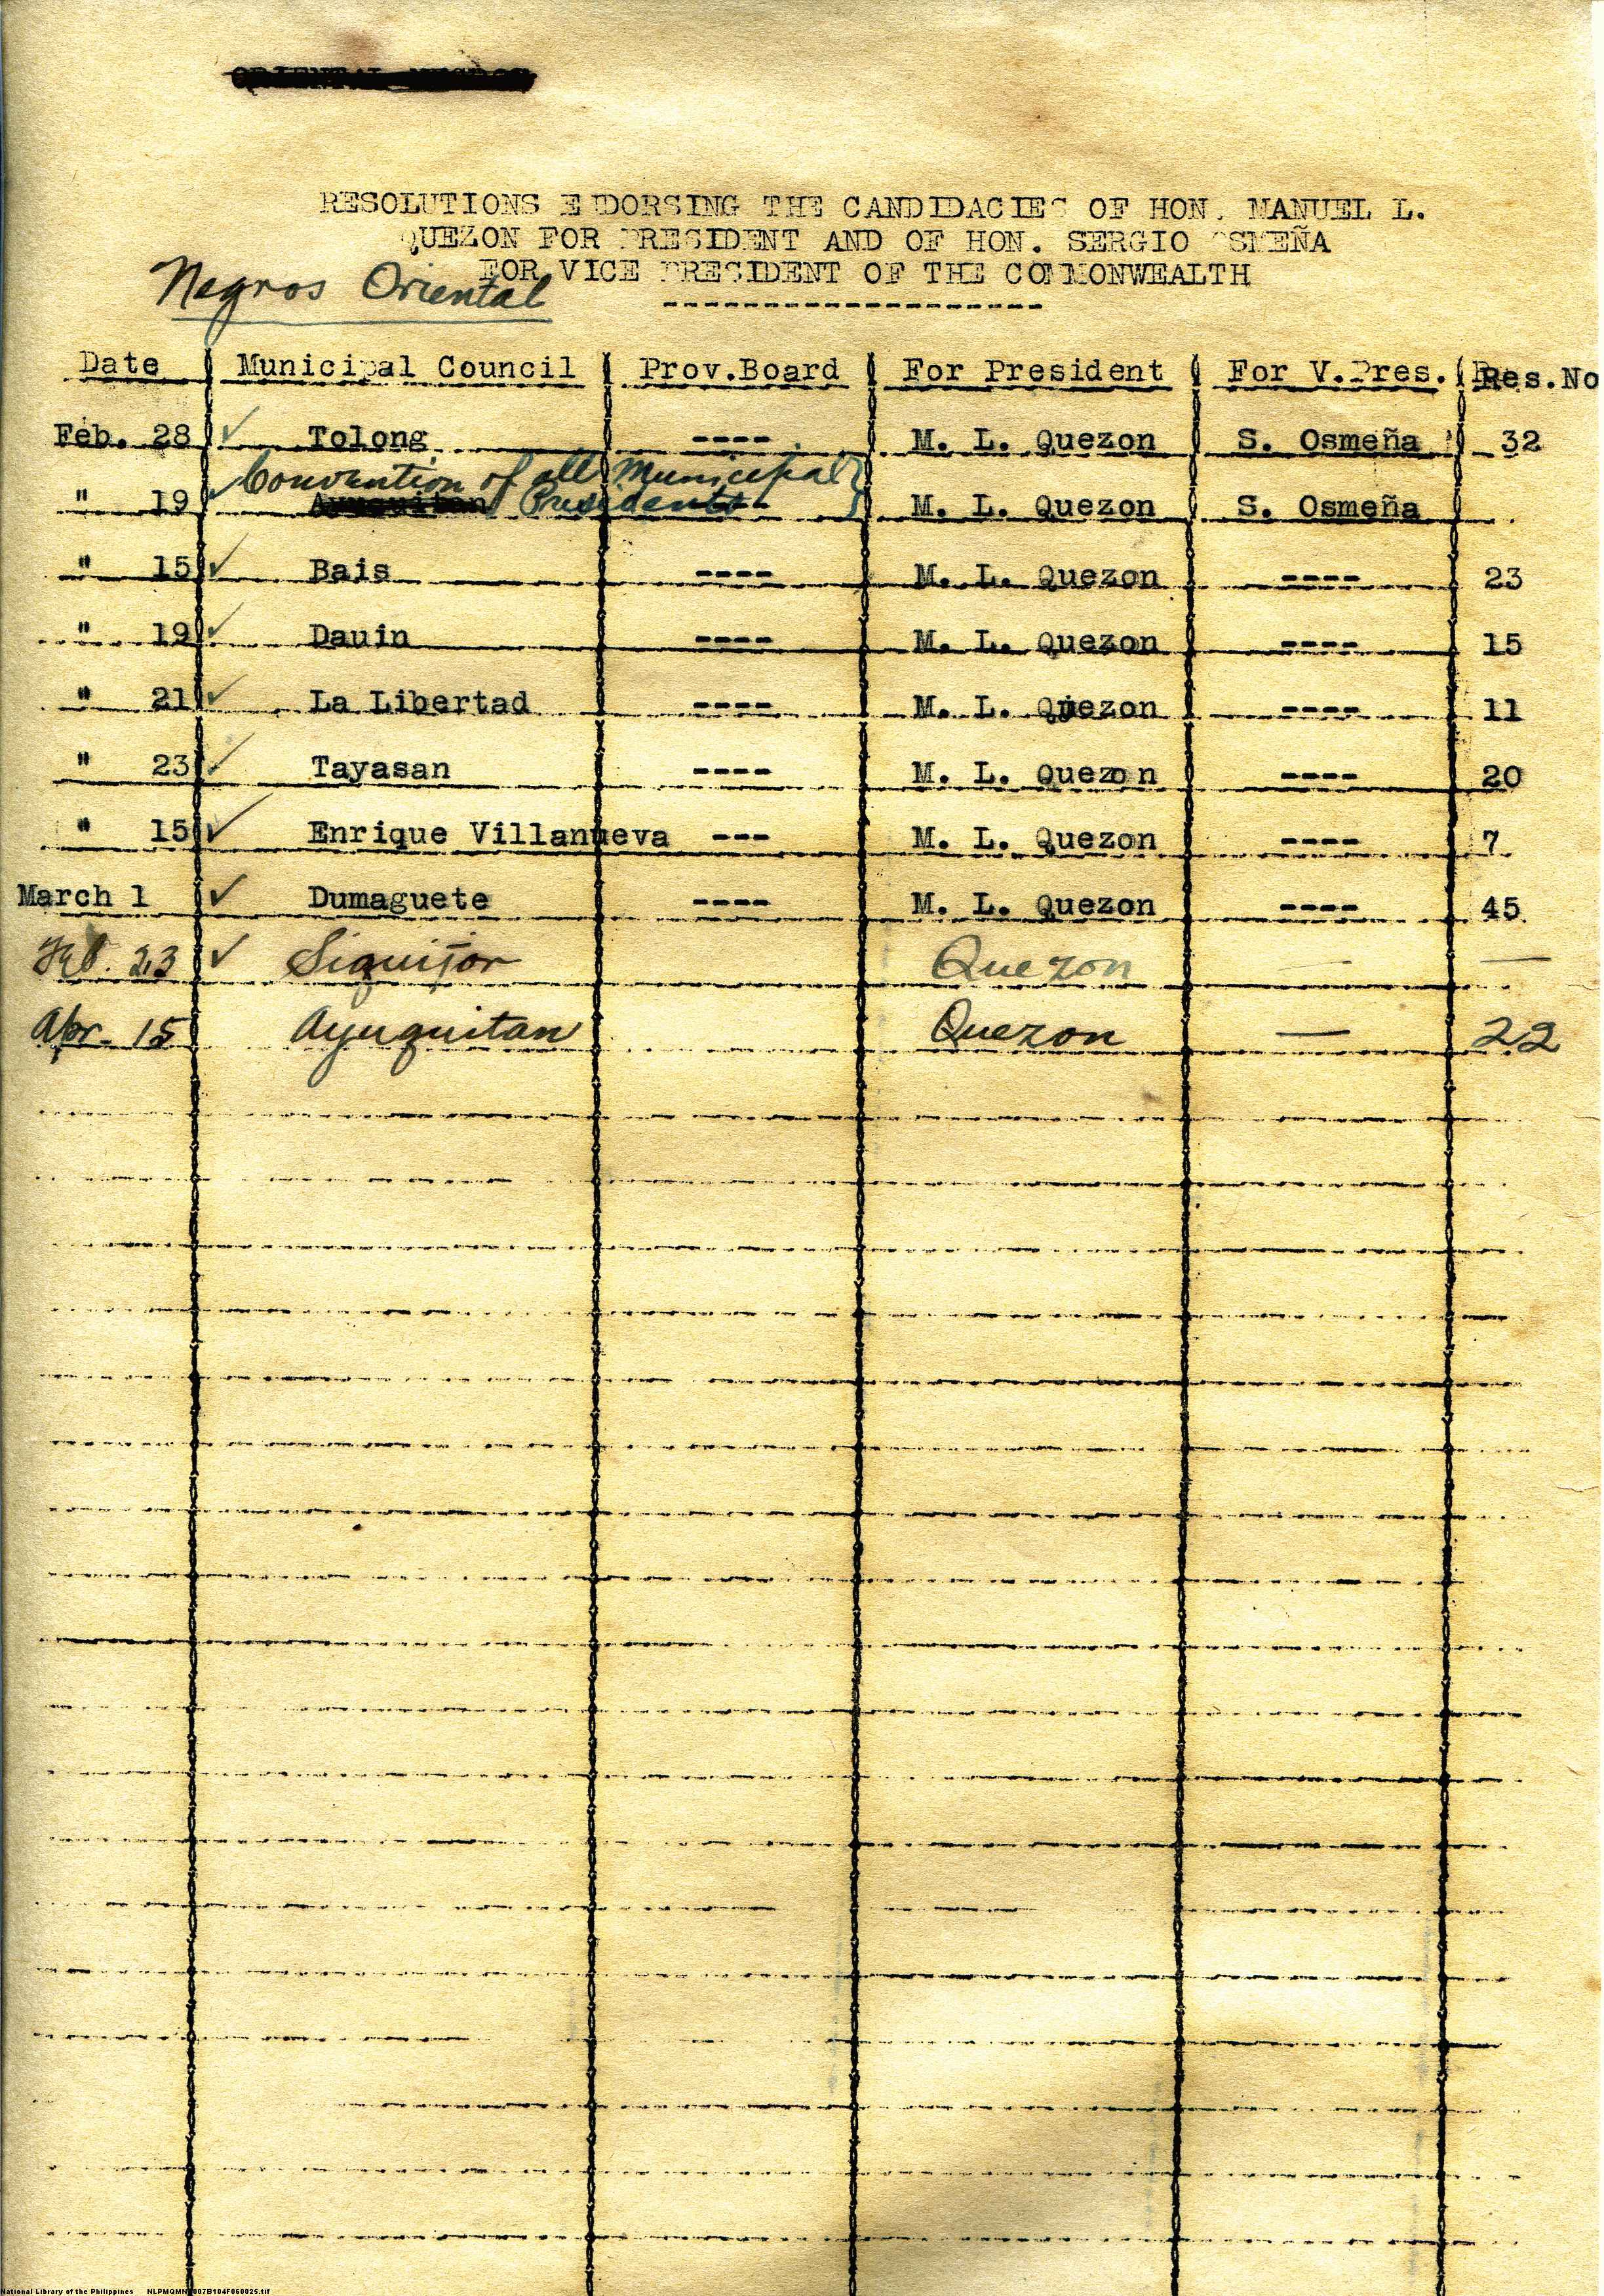 ORIENTAL NEGROS
RESOLUTIONS ENDORSING THE CANDIDACIES OF HON. MANUEL L.
QUEZON FOR PRESIDENT AND OF HON. SERGIO OSMEÑA
FOR VICE PRESIDENT OF THE COMMONWEALTH
Negros Oriental
Date Municipal Council Prov.Board For President For V.Pres. Res.No
Feb. 28 ✓ Tolong ---- M. L. Quezon S. Osmeña 32
" 19 ✓ Convention of all Municipal
Ayuquitan Presidents M. L. Quezon S. Osmeña
" 15 ✓ Bais ---- M. L. Quezon ---- 23
" 19 ✓ Dauin ---- M. L. Quezon ---- 15
" 21 ✓ La Libertad ---- M. L. Quezon ---- 11
" 23 ✓ Tayasan ---- M. L. Quezon ---- 20
" 15 ✓ Enrique Villanueva --- M. L. Quezon ---- 7
March 1 ✓ Dumaguete ---- M. L. Quezon ---- 45
Feb. 23 ✓ Siquijor Quezon — —
Apr. 15 Ayuquitan Quezon — 22
National Library of the Philippines